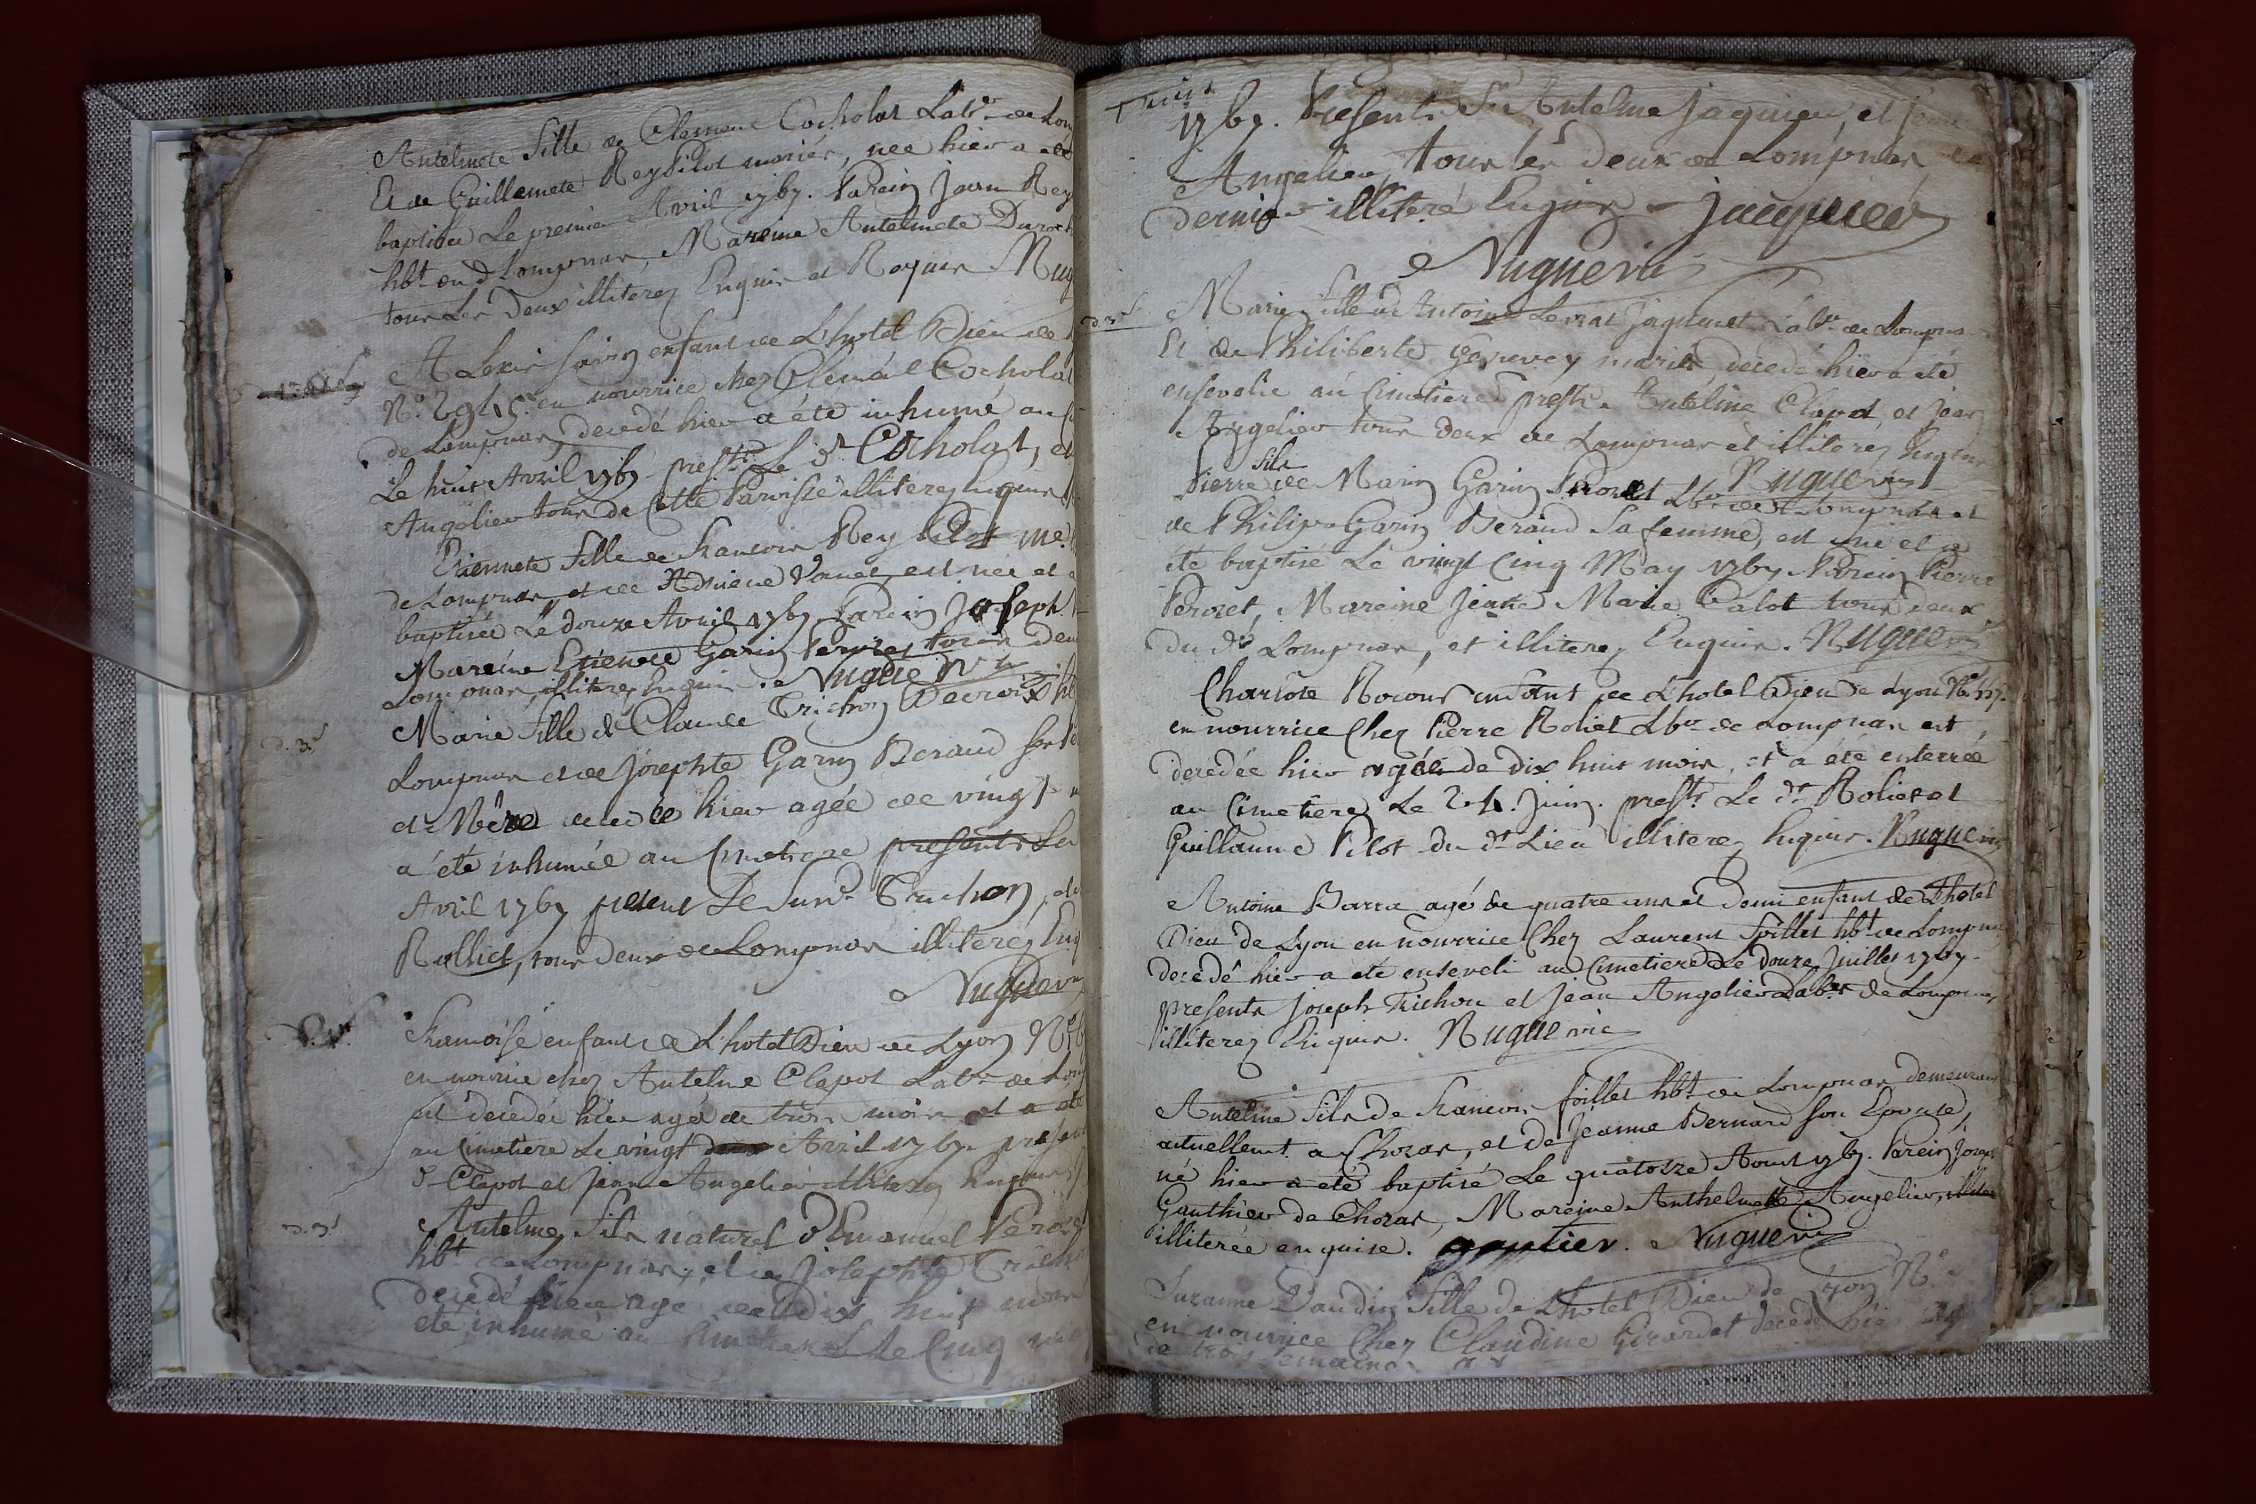 Antelmete fille de Clemenc Cocholat Lab.r de Lom
Et de Guillemete Rey Pilot mariés, nee hier a eté
baptisée Le premier Avril 1767. Parein Jean Rey
hbt. en d. Lompnas, Mareine Antelmete Duroch
tous Les deux illiterez Enquis et Requis Nug
Alexis enfant de L'hotel Dieu de
en nourrice chez Clemenc Cocholat
de Lompnas, decedé hier a été inhumé au
Le huit Avril 1767. prests. Le dt. Cocholat, et
Angelier tous de Cette Parroisse illiterez Enquis
Etiennete fille de francois Rey Pilot me.
de Lompnas, et de Vanet, est née et a
baptisée Le douze Avril 1767 Parein Joseph
Mareine Etienete Garin Perozet tous deux
Lompnas, illiterez Enquis. Nuguevie
d. 3d
Marie fille de Claude Trichon Decroix hbt
Lompnas et de Josephte Garin Beraud ses Pe
et Mere decedée hier agée de vingt
a été inhumée au Cimetiere presents Le
Avril 1767 present Le Susd. Truchon, et
Rolliet, tous deux de Lompnas illiterez Enq
Nuguevie
francoise enfant de L'hotel Dieu de Lyon N.
en nourrice chez Antelme Clapot Labr. de Lom
est decedée hier agée de trois mois et a eté
au Cimetiere Le vingt deux Avril 1767. present
d. Clapot et Jean Angelier illiterez Enquis
d. 3d
Antelme, fils naturel d'Emanuel Perozet
hbt. de Lompnas, et de Josephte Trichon
decedé hier agé de dix huit mois
eté inhumé au Cimetiere Le Cinq
1767. Presents Sr. Antelme Jaquier, et Jean
Angelier, tous les deux de Lompnas ce
dernier illiteré Enquis Jacquier
Nuguevie
d. 3d
Marie fille d'Antoine Levrat Jaquinet Labr. de Lompnas
Et de Philiberte Genevey mariés decedé hier a eté
ensevelie au Cimetiere prests. Antelme Clapot, et Jean
Angelier tous deux de Lompnas et illiterez Enquis
Nuguevie
Pierre fils de Marin Garin Perozet Lbr. de Lompnas et
de Philipe Garin Beraud Sa femme, est né et a
eté baptisé Le vingt Cinq May 1767 Parein Pierre
Perozet, Mareine Jeane Marie Calot tous deux
du dt. Lompnas, et illiterez Enquis. Nuguevie
Charlote Rocour enfant de L'hotel Dieu de Lyon No.
en nourrice Chez Pierre Roliet Lbr. de Lompnas est
decedée hier agée de dix huit mois, et a eté enterrée
au Cimetiere Le 24. Juin. prests. Le dt. Roliet et
Guillaume Pilot du dt. Lieu illiterez Enquis. Nuguevie
Antoine Barra agé de quatre ans et demi enfant de L'hotel
Dieu de Lyon en nourrice Chez Laurent foillet hbt. de Lompnas
decedé hier a eté enseveli au Cimetiere Le douze Juillet 1767.
presents Joseph Trichon et Jean Angelier Labrs. de Lompnas,
illiterez Enquis. Nuguevie
Antelme fils de francois foillet hbt. de Lompnas demeurant
actuellemt. a Chozas, et de Jeanne Bernard son Epouse,
né hier a eté baptisé Le quatorze Aout 1767. Parein Joseph
Gauthier de Chozas, Mareine Anthelmette Angelier,
illiterée enquise. gautier. Nuguevie
Suzanne Daudin fille de L'hotel Dieu de Lyon N.o
en nourrice Chez Claudine Girardet decedé hier agé
de trois semaines